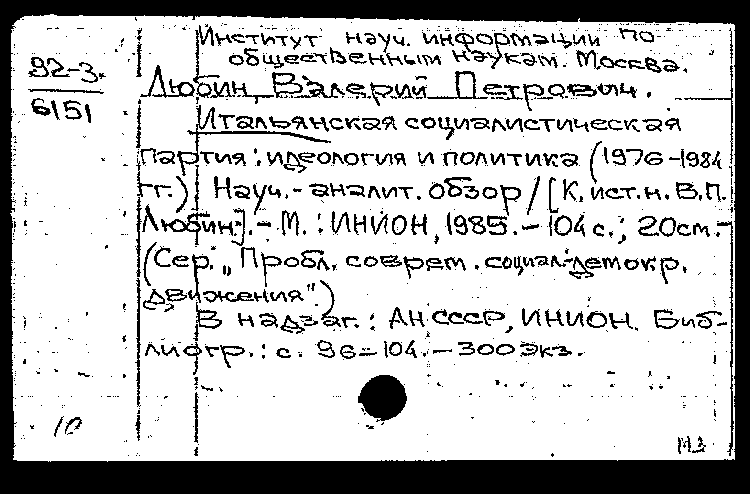 Институт науч. информации по
общественным наукам. Москва.
92-3
6151
Любин, Валерий Петрович.
Итальянская социалистическая
партия: идеология и политика (1976-1984
гг.) Науч.-аналит. обзор / [К. ист. н. В.П.
Любин]. - М.: ИНИОН, 1985. - 104 с.; 20см. -
(Сер. "Пробл. соврем. социал-демокр.
движения".)
В надзаг.: АН СССР, ИНИОН. Биб-
лиогр.: с. 96-104. - 300 экз.
10
МЗ